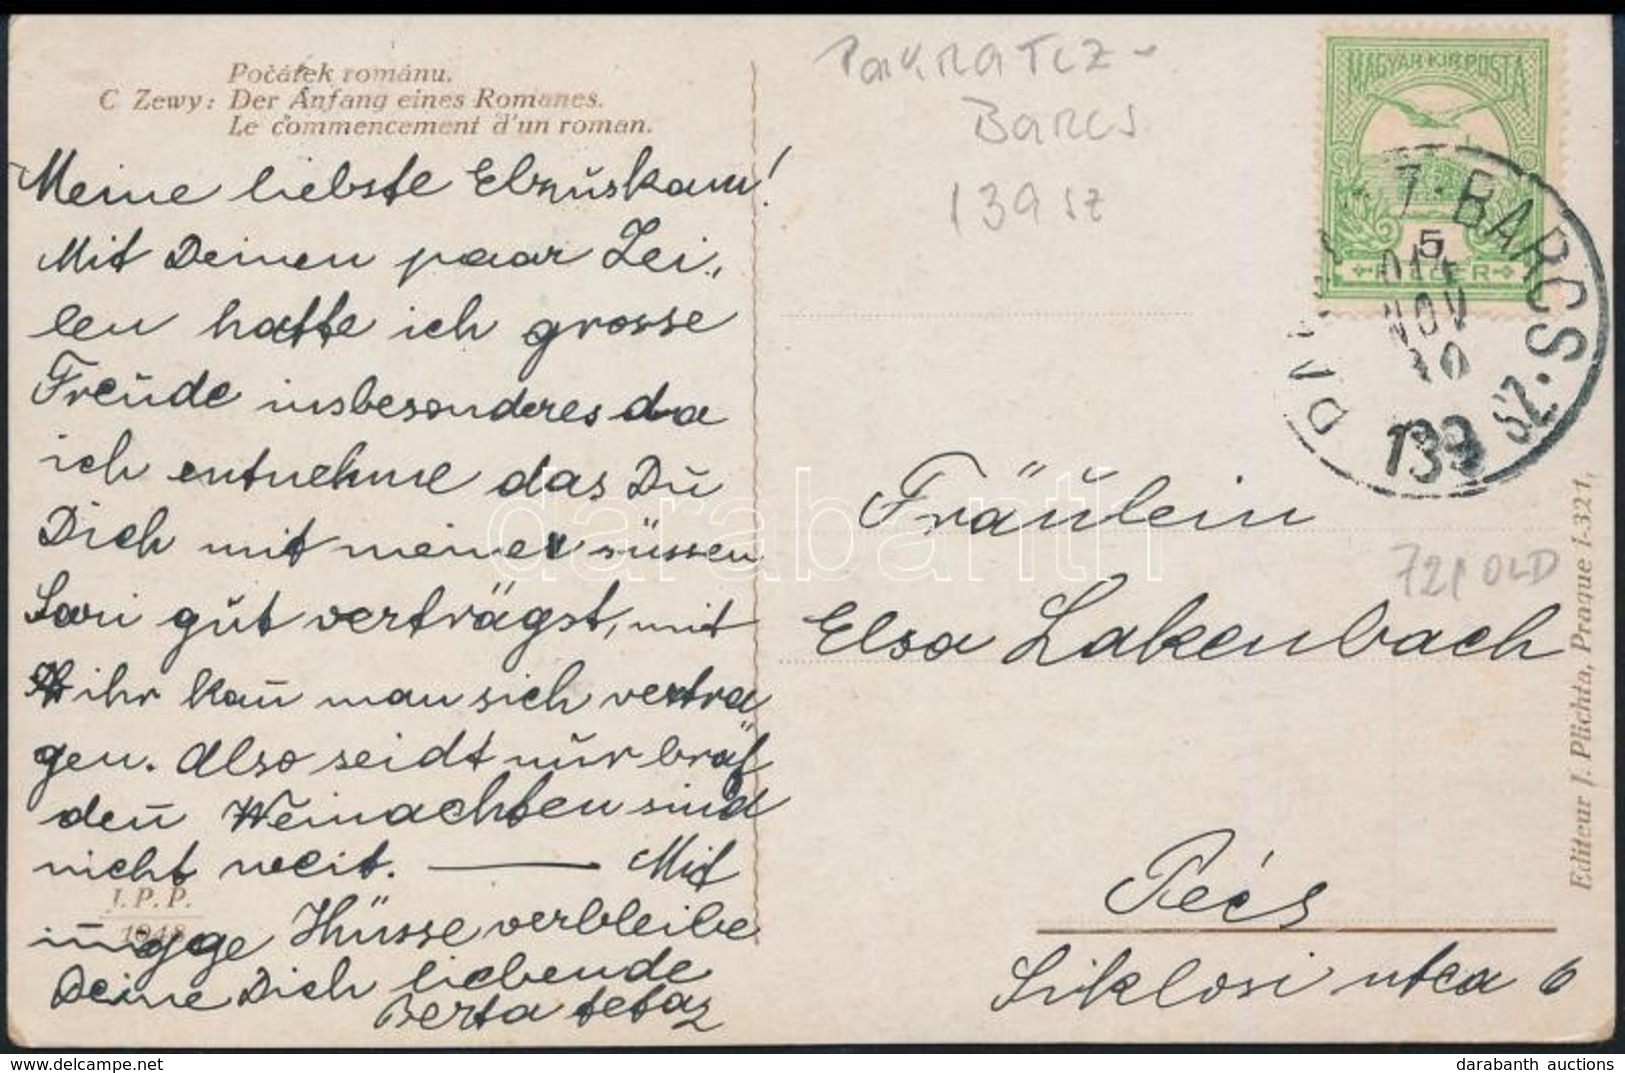 Počátek románu.
C Zewy: Der Anfang eines Romanes.
Le commencement d'un roman.
Meine liebste Elzuskam!
Mit Deinen paar Zei,,
len hatte ich grosse
Freude insbesonderes da
ich entnehme das Du
Dich mit meiner süssen
Sari gut verträgst, mit
ihr kan̄ man sich vertra
gen. Also seidt nur braf
den̄ Weinachten sind
nicht weit. — Mit
J. P. P.
1048
Küsse verbleibe
Deine Dich liebende
Berta
PAKRATCZ -
BARCS
139 SZ
MAGYAR KIR. POSTA
5
FILLER
7. BARCS
914
NOV
10
139 SZ.
Fräulein
72p OLD
Elsa Lakenbach
Pécs
Siklosi utca 6
Editeur J. Plichta, Prague I-321,
darabanth
delcampe.net
darabanth auctions